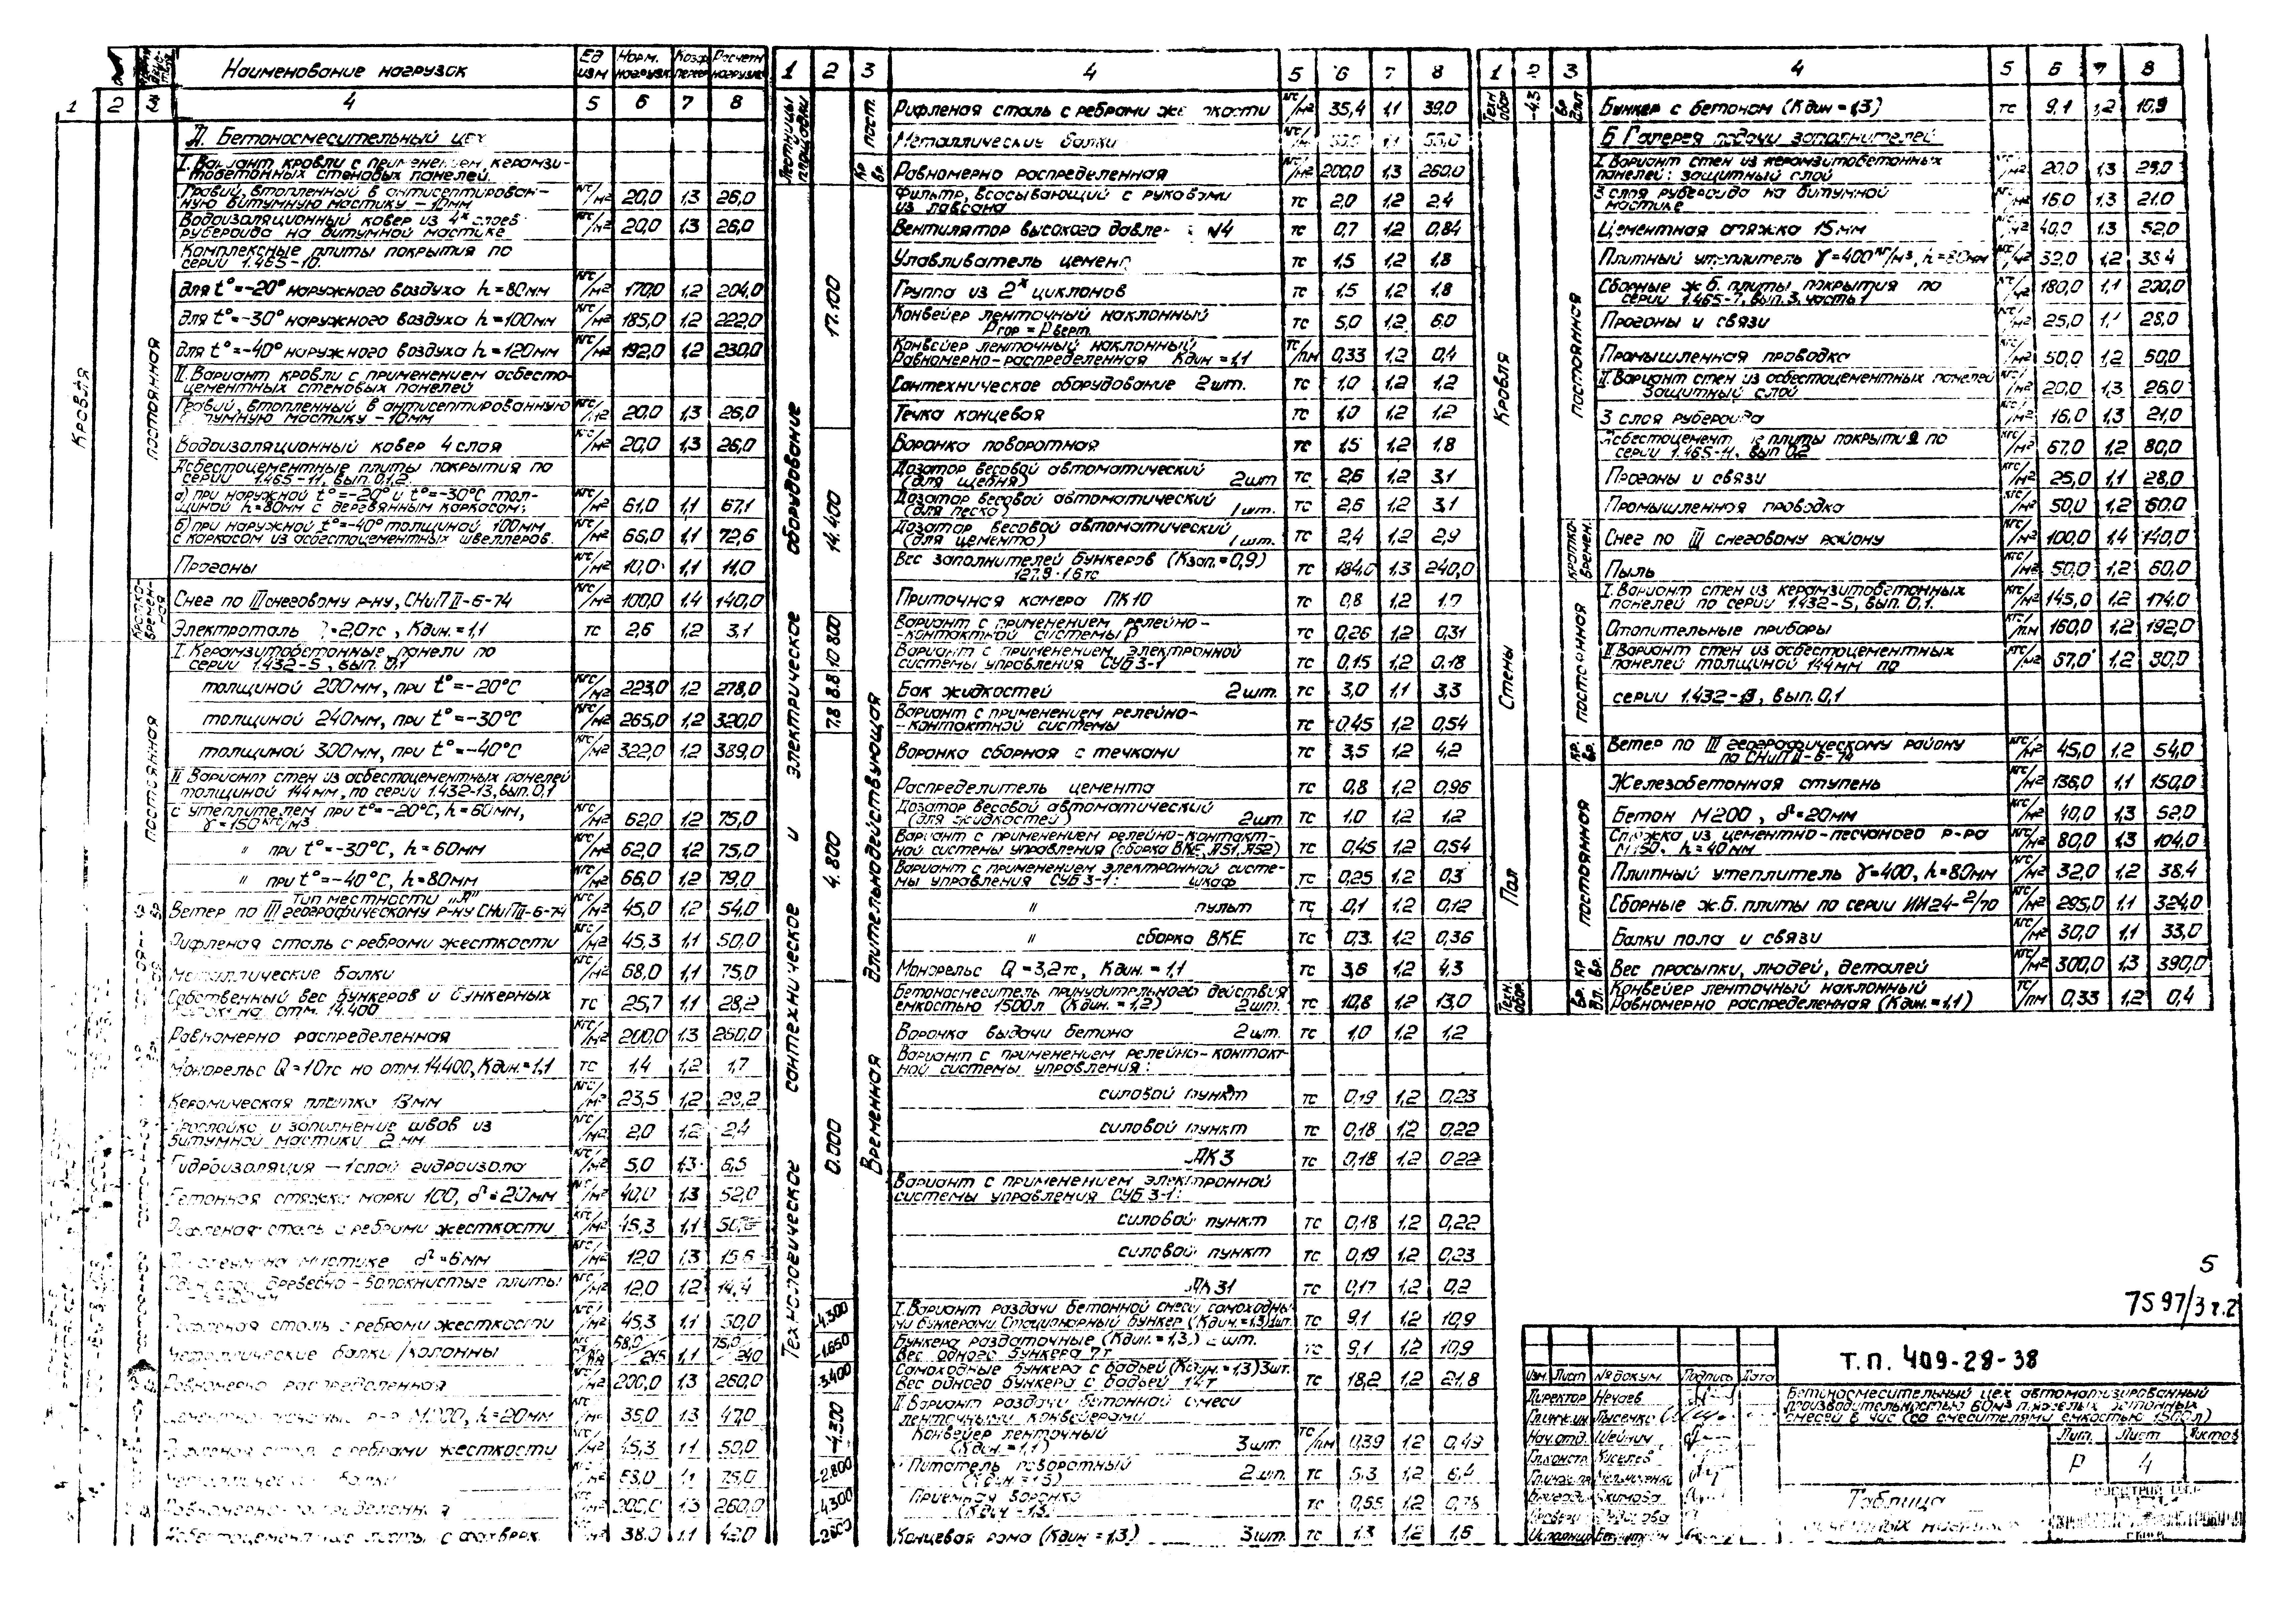 Наименование нагрузок Ед изм Норм. нагрузк Коэф перег Расчетн нагрузк
1 2 3 4 5 6 7 8
А. Бетоносмесительный цех
I. Вариант кровли с применением керамзи-
тобетонных стеновых панелей.
Гравий, втопленный в антисептирован-
ную битумную мастику – 10мм кгс/м2 20,0 1,3 26,0
Водоизоляционный ковер из 4х слоев
рубероида на битумной мастике кгс/м2 20,0 1,3 26,0
Комплексные плиты покрытия по
серии 1.465-10.
для t°=-20° наружного воздуха h=80мм кгс/м2 170,0 1,2 204,0
для t°=-30° наружного воздуха h=100мм кгс/м2 185,0 1,2 222,0
для t°=-40° наружного воздуха h=120мм кгс/м2 192,0 1,2 230,0
II. Вариант кровли с применением асбесто-
цементных стеновых панелей
Гравий, втопленный в антисептированную
мастику – 10мм кгс/м2 20,0 1,3 26,0
Водоизоляционный ковер 4 слоя кгс/м2 20,0 1,3 26,0
Асбестоцементные плиты покрытия по
серии 1.465-11, вып. 0,1,2.
а) при наружной t°=-20° и t°=-30°С тол-
щиной h=80мм с деревянным каркасом; кгс/м2 61,0 1,1 67,1
б) при наружной t°=-40° толщиной 100мм
с каркасом из асбестоцементных швеллеров. кгс/м2 66,0 1,1 72,6
Прогоны кгс/м2 10,0 1,1 11,0
Снег по III снеговому р-ну, СНиП II-6-74 кгс/м2 100,0 1,4 140,0
Электроталь =2,0тс, Кдин.=1,1 тс 2,6 1,2 3,1
I. Керамзитобетонные панели по
серии 1.432-5, вып. 0,1
толщиной 200мм, при t°=-20°С кгс/м2 223,0 1,2 278,0
толщиной 240мм, при t°=-30°С кгс/м2 265,0 1,2 320,0
толщиной 300мм, при t°=-40°С кгс/м2 322,0 1,2 389,0
II Вариант стен из асбестоцементных панелей
толщиной 144мм, по серии 1.432-13, вып. 0,1
с утеплителем при t°=-20°С, h=60мм,
γ=150кгс/м3 кгс/м2 62,0 1,2 75,0
" при t°=-30°С, h=60мм кгс/м2 62,0 1,2 75,0
" при t°=-40°С, h=80мм кгс/м2 66,0 1,2 79,0
Тип местности "А"
Ветер по III географическому р-ну СНиП II-6-74 кгс/м2 45,0 1,2 54,0
Рифленая сталь с ребрами жесткости кгс/м2 45,3 1,1 50,0
Металлические балки кгс/м2 68,0 1,1 75,0
Собственный вес бункеров и бункерных
на отм. 14.400 тс 25,7 1,1 28,2
Равномерно распределенная кгс/м2 200,0 1,3 260,0
Монорельс Q=10тс на отм. 14.400, Кдин.=1,1 тс 1,4 1,2 1,7
Керамическая плитка 13мм кгс/м2 23,5 1,2 28,2
Прослойка и заполнение швов из
битумной мастики 2 мм кгс/м2 2,0 1,2 2,4
Гидроизоляция – 1 слой гидроизола кгс/м2 5,0 1,3 6,5
Бетонная стяжка марки 100, δ=20мм кгс/м2 40,0 1,3 52,0
Рифленая сталь с ребрами жесткости кгс/м2 45,3 1,1
мастике δ=6мм кгс/м2 12,0 1,3 15,6
древесно-волокнистые плиты кгс/м2 12,0 1,2 14,4
Рифленая сталь с ребрами жесткости кгс/м2 45,3 1,1 50,0
Металлические балки/колонны 68,0/215 1,1 75,0/240
Равномерно распределенная кгс/м2 200,0 1,3 260,0
h=20мм 35,0 1,3 47,0
Рифленая сталь с ребрами жесткости кгс/м2 45,3 1,1 50,0
балки 1,1 75,0
Равномерно-распределенная кгс/м2 200,0 1,3 260,0
Асбестоцементные листы с 38,0 1,1 42,0
Кровля
постоянная
Кратко-времен-ная
постоянная
1 2 3 4 5 6 7 8
Рифленая сталь с ребрами жесткости кгс/м2 35,4 1,1 39,0
Металлические балки кгс/м
Равномерно распределенная кгс/м2 200,0 1,3 260,0
Фильтр, всасывающий с рукавами
из лавсана тс 2,0 1,2 2,4
Вентилятор высокого N4 тс 0,7 1,2 0,84
Улавливатель цемента тс 1,5 1,2 1,8
Группа из 2х циклонов тс 1,5 1,2 1,8
Конвейер ленточный наклонный
Ргор = Рверт. тс 5,0 1,2 6,0
Конвейер ленточный наклонный
Равномерно-распределенная Кдин=1,1 тс/пм 0,33 1,2 0,4
Сантехническое оборудование 2шт. тс 1,0 1,2 1,2
Течка концевая тс 1,0 1,2 1,2
Воронка поворотная тс 1,5 1,2 1,8
Дозатор весовой автоматический
(для щебня) 2шт тс 2,6 1,2 3,1
Дозатор весовой автоматический
(для песка) 1шт. тс 2,6 1,2 3,1
Дозатор весовой автоматический
(для цемента) 1шт. тс 2,4 1,2 2,9
Вес заполнителей бункеров (Кзап.=0,9)
127,8·1,6тс тс 184,0 1,3 240,0
Приточная камера ПК10 тс 0,8 1,2
Вариант с применением релейно-
-контактной системы тс 0,26 1,2 0,31
Вариант с применением электронной
системы управления СУБ3-1 тс 0,15 1,2 0,18
Бак жидкостей 2шт. тс 3,0 1,1 3,3
Вариант с применением релейно-
-контактной системы тс 0,45 1,2 0,54
Воронка сборная с течками тс 3,5 1,2 4,2
Распределитель цемента тс 0,8 1,2 0,96
Дозатор весовой автоматический
(для жидкостей) 2шт тс 1,0 1,2 1,2
Вариант с применением релейно-контакт-
ной системы управления (сборка ВКЕ, Я51, Я52) тс 0,45 1,2 0,54
Вариант с применением электронной систе-
мы управления СУБ3-1: шкаф тс 0,25 1,2 0,3
" пульт тс 0,1 1,2 0,12
" сборка ВКЕ тс 0,3 1,2 0,36
Монорельс Q=3,2тс, Кдин.=1,1 тс 3,6 1,2 4,3
Бетоносмеситель принудительного действия
емкостью 1500л (Кдин.=1,2) 2шт. тс 10,8 1,2 13,0
Воронка выдачи бетона 2шт. тс 1,0 1,2 1,2
Вариант с применением релейно-контакт-
ной системы управления:
силовой пункт тс 0,19 1,2 0,23
силовой пункт тс 0,18 1,2 0,22
ЯК3 тс 0,18 1,2 0,22
Вариант с применением электронной
системы управления СУБ3-1:
силовой пункт тс 0,18 1,2 0,22
силовой пункт тс 0,19 1,2 0,23
ЯК31 тс 0,17 1,2 0,2
I. Вариант раздачи бетонной смеси самоходны-
ми бункерами. Стационарный бункер (Кдин.=1,3) 1шт. тс 9,1 1,2 10,9
Бункера раздаточные (Кдин.=1,3) 2шт.
Вес одного бункера 7т тс 9,1 1,2 10,9
Самоходные бункера с бадьей (Кдин.=1,3) 3шт.
Вес одного бункера с бадьей 14т тс 18,2 1,2 21,8
II Вариант раздачи бетонной смеси
ленточными конвейерами
Конвейер ленточный
(Кдин.=1,1) 3шт. тс/пм 0,39 1,2 0,49
Питатель поворотный
2шт. тс 5,3 1,2 6,4
Приемная воронка
тс 0,65 1,2 0,78
Концевая рама (Кдин=1,3) 3шт. тс 1,3 1,2 1,6
Лестницы площадки
пост.
Кр вр.
Технологическое сантехническое и электрическое оборудование
17.100
14.400
10.800
8.8
7.8
4.800
0.000
-4.300
-1.650
-3.400
-4.300
-2.800
-4.300
-2.800
Временная длительнодействующая
1 2 3 4 5 6 7 8
Бункер с бетоном (Кдин=1,3) тс 9,1 1,2 10,9
Б Галерея подачи заполнителей
I. Вариант стен из керамзитобетонных
панелей: защитный слой кгс/м2 20,0 1,3 26,0
3 слоя рубероида на битумной
мастике кгс/м2 16,0 1,3 21,0
Цементная стяжка 15мм кгс/м2 40,0 1,3 52,0
Плитный утеплитель γ=400кг/м3, h=80мм кгс/м2 32,0 1,2 38,4
Сборные ж.б. плиты покрытия по
серии 1.465-7, вып. 3, часть 1 кгс/м2 180,0 1,1 200,0
Прогоны и связи кгс/м2 25,0 1,1 28,0
Промышленная проводка кгс/м2 50,0 1,2 60,0
II. Вариант стен из асбестоцементных панелей
Защитный слой кгс/м2 20,0 1,3 26,0
3 слоя рубероида кгс/м2 16,0 1,3 21,0
Асбестоцементные плиты покрытия по
серии 1.465-11, вып 0,2 кгс/м2 67,0 1,2 80,0
Прогоны и связи кгс/м2 25,0 1,1 28,0
Промышленная проводка кгс/м2 50,0 1,2 60,0
Снег по III снеговому району кгс/м2 100,0 1,4 140,0
Пыль кгс/м2 50,0 1,2 60,0
I. Вариант стен из керамзитобетонных
панелей по серии 1.432-5, вып. 0,1. кгс/м2 145,0 1,2 174,0
Отопительные приборы кгс/п.м 160,0 1,2 192,0
II Вариант стен из асбестоцементных
панелей толщиной 144мм по кгс/м2 57,0 1,2
серии 1.432- , вып. 0,1
Ветер по III географическому району
по СНиП II-6-74 кгс/м2 45,0 1,2 54,0
Железобетонная ступень кгс/м2 136,0 1,1 150,0
Бетон М200, δ=20мм кгс/м2 40,0 1,3 52,0
Стяжка из цементно-песчаного р-ра
М150, h=40мм кгс/м2 80,0 1,3 104,0
Плитный утеплитель γ=400, h=80мм кгс/м2 32,0 1,2 38,4
Сборные ж.б. плиты по серии ИИ24-2/70 кгс/м2 295,0 1,1 324,0
Балки пола и связи кгс/м2 30,0 1,1 33,0
Вес просыпки, людей, деталей кгс/м2 300,0 1,3 390,0
Конвейер ленточный наклонный
Равномерно распределенная (Кдин.=1,1) тс/пм 0,33 1,2 0,4
Техн обор
-4.3
Вр. дл.
Кровля
постоянная
Кратко-времен.
Стены
постоянная
Кр. вр.
Пол
постоянная
Кр вр.
Техн. обор.
Вр. дл.
5
7597/3 т.2
Т.П. 409-29-38
Изм. Лист № докум. Подпись Дата
Директор Нечаев
Лысенко
Нач. отд. Шейнич
Гл. констр. Киселев
Бетоносмесительный цех автоматизированный
производительностью 60м3 тяжелых бетонных
смесей в час (со смесителями емкостью 1500л)
Лит. Лист Листов
Р 4
Таблица